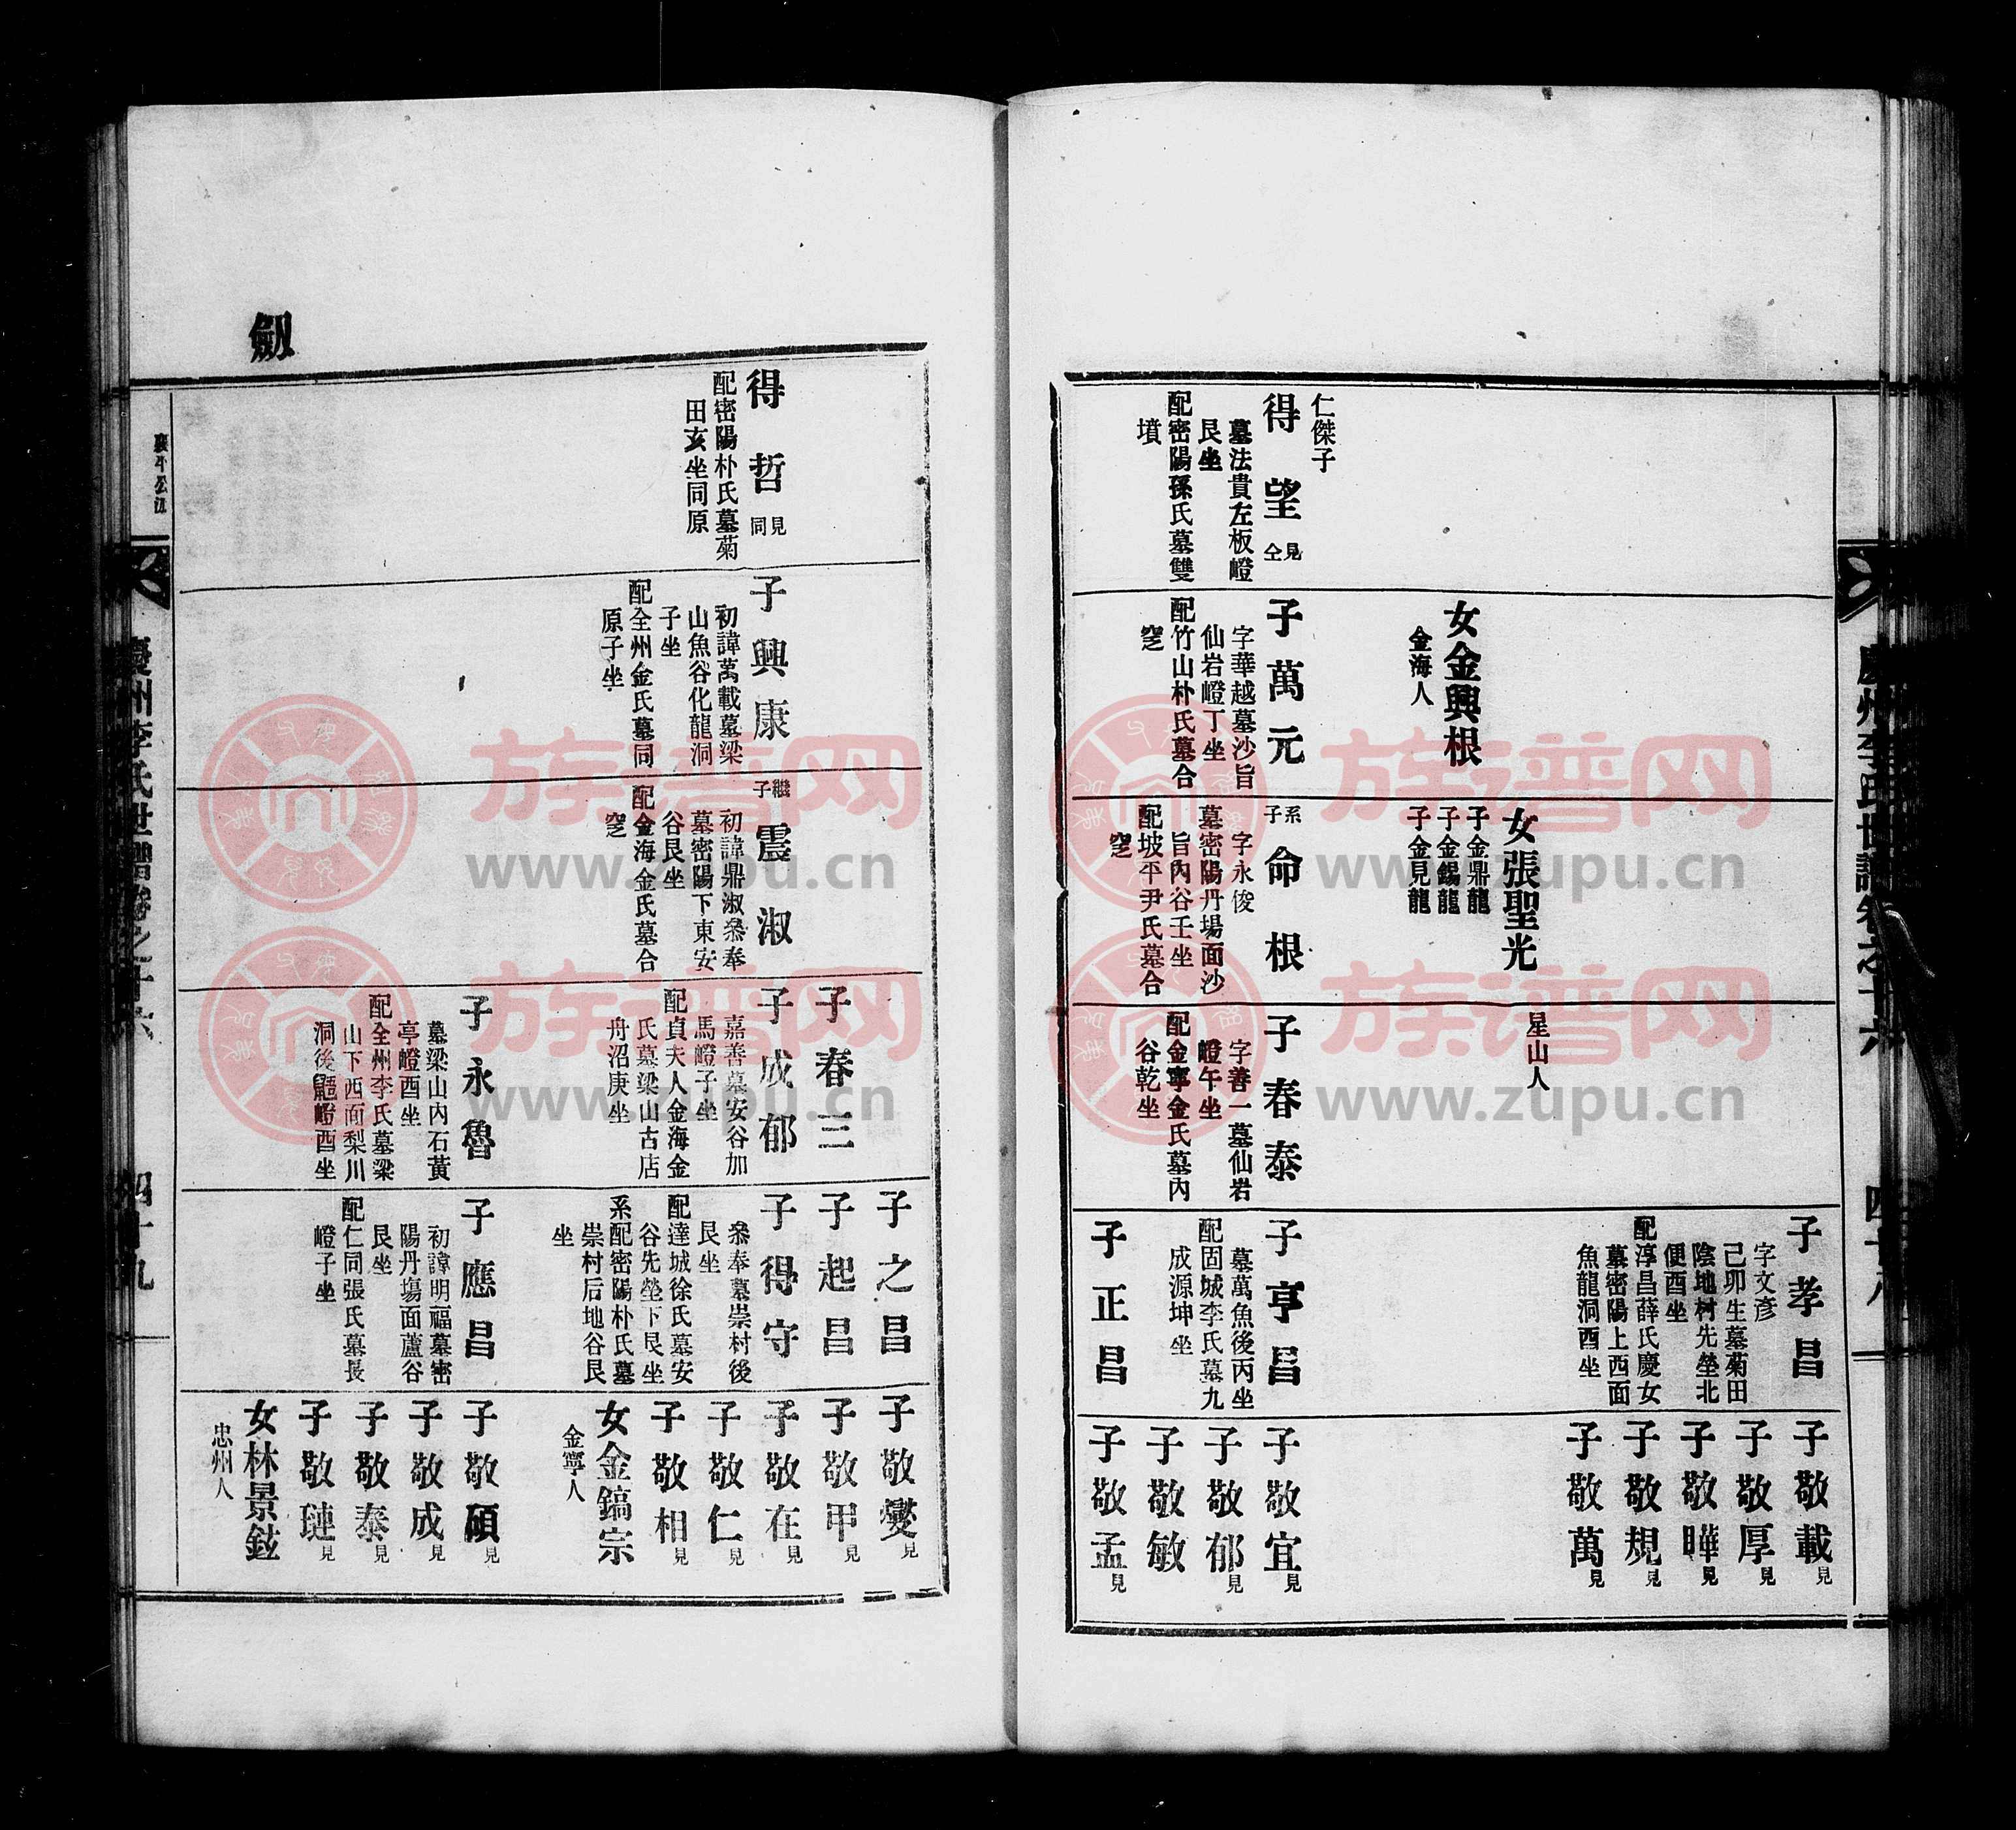 慶州李氏世譜卷之十六
四十八
女金興根
金海人
女張聖光
子金鼎龍
子金錫龍
子金見龍
星山人
子孝昌
字文彦
己卯生墓菊田
陰地村先塋北
便酉坐
配淳昌薛氏慶女
墓密陽上西面
魚龍洞酉坐
子敬載見
子敬厚見
子敬曄見
子敬規見
子敬萬見
仁傑子
得望見仝
墓法貴左板嶝
艮坐
配密陽孫氏墓雙
墳
子萬元
字華越墓沙旨
仙岩嶝丁坐
配竹山朴氏墓合
窆
系子命根
字永俊
墓密陽丹場面沙
旨內谷壬坐
配坡平尹氏墓合
窆
子春泰
字善一墓仙岩
嶝午坐
配金寧金氏墓內
谷乾坐
子亨昌
墓萬魚後丙坐
配固城李氏墓九
成源坤坐
子正昌
子敬宜見
子敬郁見
子敬敏
子敬孟見
得哲見同
配密陽朴氏墓菊
田亥坐同原
子興康
初諱萬載墓梁
山魚谷化龍洞
子坐
配全州金氏墓同
原子坐
繼子震淑
初諱鼎淑叅奉
墓密陽下東安
谷艮坐
配金海金氏墓合
窆
子春三
子成郁
嘉善墓安谷加
馬嶝子坐
配貞夫人金海金
氏墓梁山古店
舟沼庚坐
子永魯
墓梁山內石黃
亭嶝酉坐
配全州李氏墓梁
山下西面梨川
洞後嶝酉坐
子之昌
子起昌
子得守
叅奉墓崇村後
艮坐
配達城徐氏墓安
谷先塋下艮坐
系配密陽朴氏墓
崇村后地谷艮
坐
子應昌
初諱明福墓密
陽丹場面蘆谷
艮坐
配仁同張氏墓長
嶝子坐
子敬燮見
子敬甲見
子敬在見
子敬仁見
子敬相見
女金鎬宗
金寧人
子敬碩見
子敬成見
子敬泰見
子敬璉見
女林景鉉
忠州人
劒
襄平公派
慶州李氏世譜卷之十六
四十九
族谱网
www.zupu.cn
族谱网
www.zupu.cn
族谱网
www.zupu.cn
族谱网
www.zupu.cn